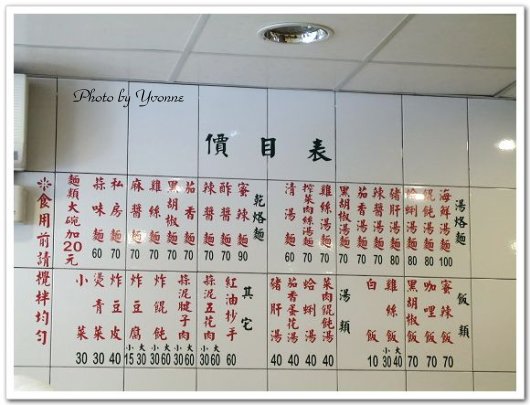 Photo by Yvonne
價目表
湯烙麵
海鮮湯麵 100
餛飩湯麵 80
蛤蜊湯麵 80
豬肝湯麵 80
辣醬湯麵 70
茄香湯麵 70
黑胡椒湯麵 70
雞絲湯麵 70
榨菜肉絲湯麵 70
清湯麵 60
乾烙麵
蜜辣麵 90
酢醬麵 70
辣醬麵 70
茄香麵 70
黑胡椒麵 70
雞絲麵 70
麻醬麵 70
私房麵 70
蒜味麵 60
麵類大碗加20元
飯類
蜜辣飯 70
咖哩飯 70
黑胡椒飯 70
雞絲飯 大40 小30
白飯 10
湯類
菜肉餛飩湯 40
蛤蜊湯 40
茄香蛋花湯 40
豬肝湯 40
其它
紅油抄手 60
蒜泥五花肉 大60 小30
蒜泥腱子肉 大60 小30
炸餛飩 大60 小30
炸豆腐 大30 小15
炸豆皮 40
燙青菜 30
小菜 30
※食用前請攪拌均勻